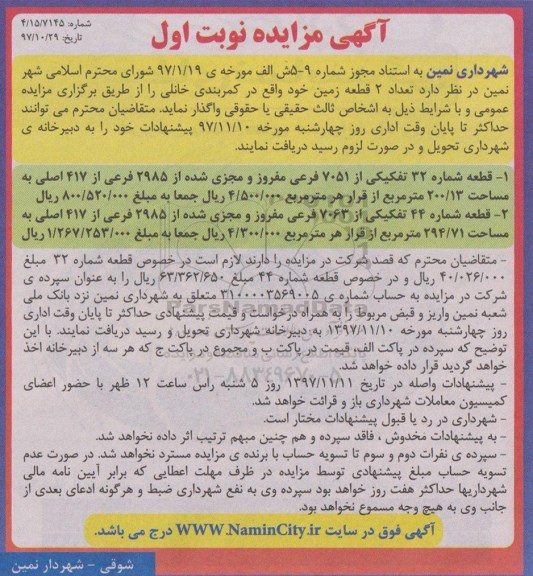 آگهی مزایده نوبت اول
شماره: ۴/۱۵/۷۱۴۵
تاریخ: ۹۷/۱۰/۲۹
شهرداری نمین به استناد مجوز شماره ۹-۵ش الف مورخه ی ۹۷/۱/۱۹ شورای محترم اسلامی شهر
نمین در نظر دارد تعداد ۲ قطعه زمین خود واقع در کمربندی خانلی را از طریق برگزاری مزایده
عمومی و با شرایط ذیل به اشخاص ثالث حقیقی یا حقوقی واگذار نماید. متقاضیان محترم می توانند
حداکثر تا پایان وقت اداری روز چهارشنبه مورخه ۹۷/۱۱/۱۰ پیشنهادات خود را به دبیرخانه ی
شهرداری تحویل و در صورت لزوم رسید دریافت نمایند.
۱- قطعه شماره ۳۲ تفکیکی از ۷۰۵۱ فرعی مفروز و مجزی شده از ۲۹۸۵ فرعی از ۴۱۷ اصلی به
مساحت ۲۰۰/۱۳ مترمربع از قرار هر مترمربع ۴/۵۰۰/۰۰۰ ریال جمعا به مبلغ ۸۰۰/۵۲۰/۰۰۰ ریال
۲- قطعه شماره ۴۴ تفکیکی از ۷۰۶۳ فرعی مفروز و مجزی شده از ۲۹۸۵ فرعی از ۴۱۷ اصلی به
مساحت ۲۹۴/۷۱ مترمربع از قرار هر مترمربع ۴/۳۰۰/۰۰۰ ریال جمعا به مبلغ ۱/۲۶۷/۲۵۳/۰۰۰ ریال
- متقاضیان محترم که قصد شرکت در مزایده را دارند لازم است در خصوص قطعه شماره ۳۲ مبلغ
۴۰/۰۲۶/۰۰۰ ریال و در خصوص قطعه شماره ۴۴ مبلغ ۶۳/۳۶۲/۶۵۰ ریال را به عنوان سپرده ی
شرکت در مزایده به حساب شماره ی ۳۱۰۰۰۰۳۵۶۹۰۰۵ متعلق به شهرداری نمین نزد بانک ملی
شعبه نمین واریز و قبض مربوط را به همراه درخواست و قیمت پیشنهادی حداکثر تا پایان وقت اداری
روز چهارشنبه مورخه ۱۳۹۷/۱۱/۱۰ به دبیرخانه شهرداری تحویل و رسید دریافت نمایند. با این
توضیح که سپرده در پاکت الف، قیمت در پاکت ب و مجموع در پاکت ج که هر سه از دبیرخانه اخذ
خواهد گردید قرار داده خواهد شد.
- پیشنهادات واصله در تاریخ ۱۳۹۷/۱۱/۱۱ روز ۵ شنبه راس ساعت ۱۲ ظهر با حضور اعضای
کمیسیون معاملات شهرداری باز و قرائت خواهد شد.
- شهرداری در رد یا قبول پیشنهادات مختار است.
- به پیشنهادات مخدوش ، فاقد سپرده و هم چنین مبهم ترتیب اثر داده نخواهد شد.
- سپرده ی نفرات دوم و سوم تا تسویه حساب با برنده ی مزایده مسترد نخواهد شد. در صورت عدم
تسویه حساب مبلغ پیشنهادی توسط مزایده در ظرف مهلت اعطایی که برابر آیین نامه مالی
شهرداریها حداکثر هفت روز خواهد بود سپرده وی به نفع شهرداری ضبط و هرگونه ادعای بعدی از
جانب وی به هیچ وجه مسموع نخواهد بود.
آگهی فوق در سایت WWW.NaminCity.ir درج می باشد.
شوقی - شهردار نمین